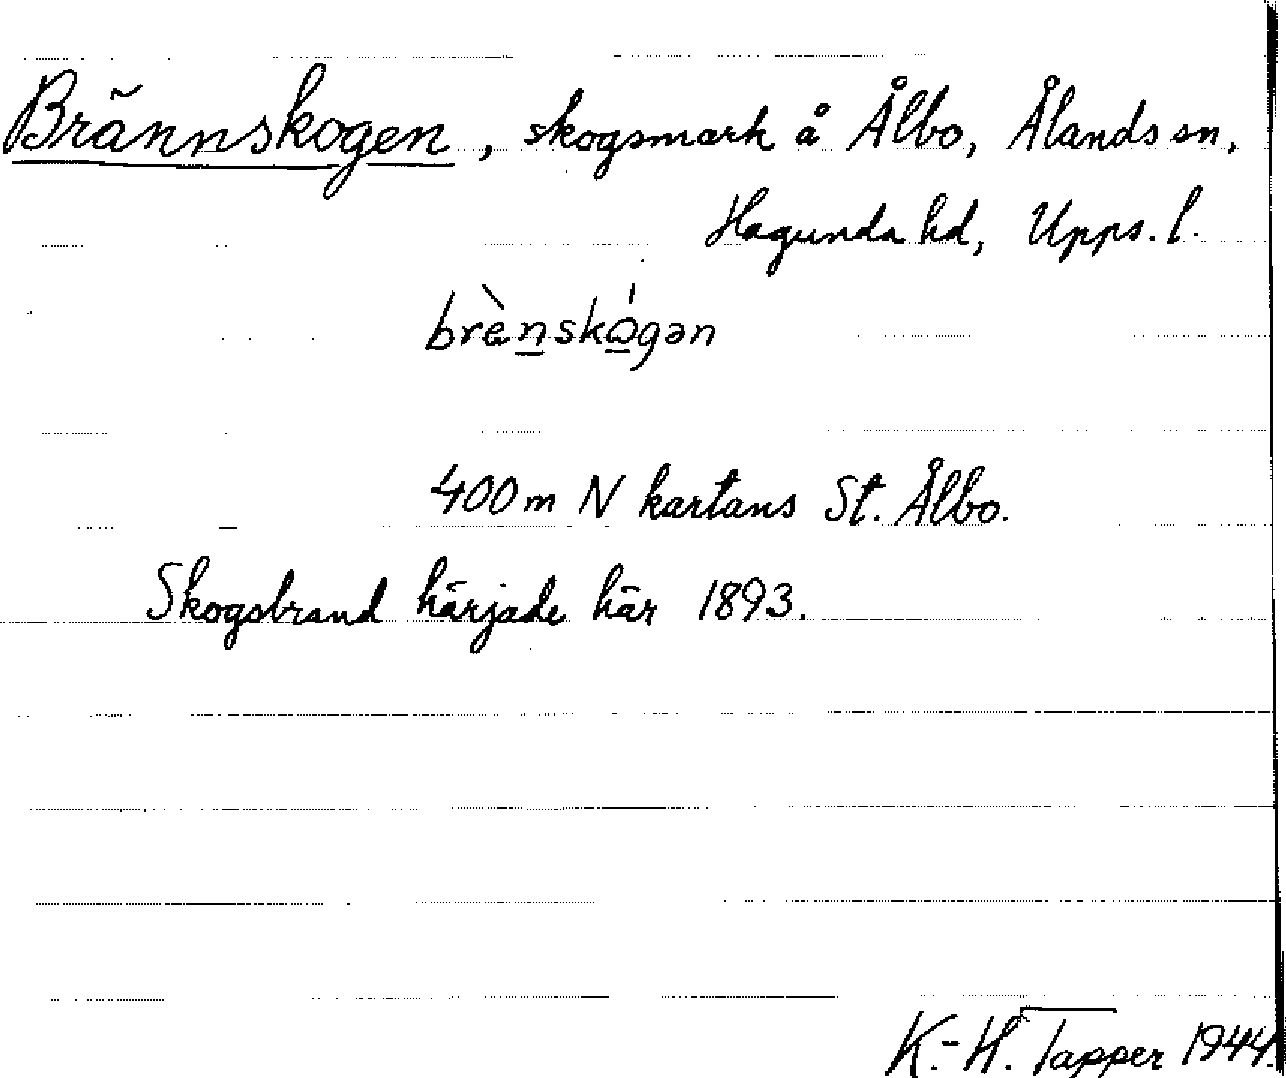 Brännskogen, skogsmark å Ålbo, Ålands sn,
Hagunda hd, Upps. l.
brènskógən
400 m N kartans St. Ålbo.
Skogsbrand härjade här 1893.
K.-H. Tapper 1944.